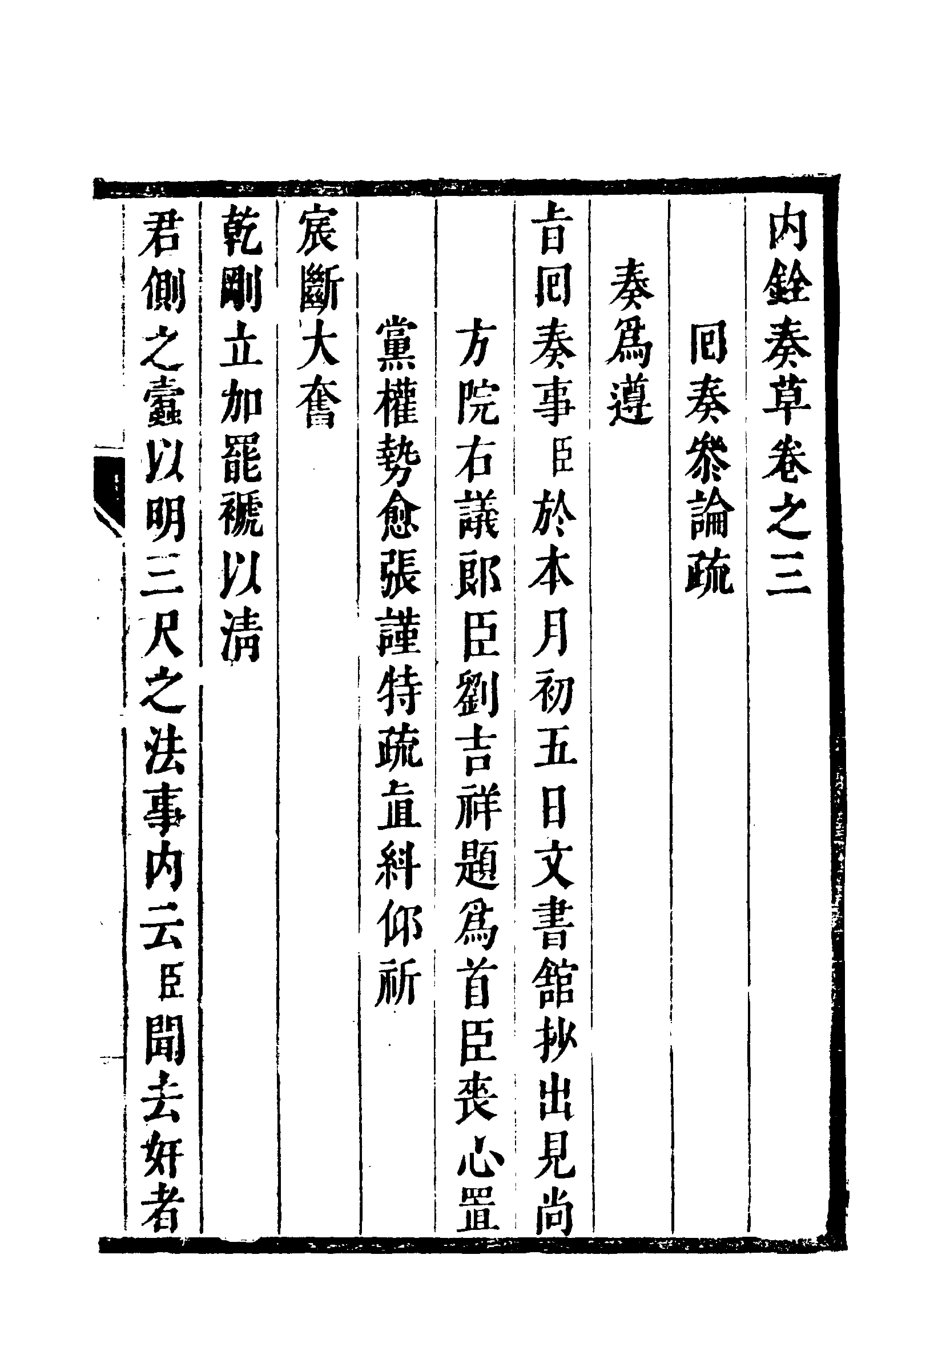 内銓奏草卷之三
囘奏叅論疏
奏爲遵
旨囘奏事臣於本月初五日文書館抄出見尚
方院右議郎臣劉吉祥題爲首臣喪心置
黨權勢愈張謹特疏直糾仰祈
宸斷大奮
乾剛立加罷褫以清
君側之蠹以明三尺之法事内云臣聞去奸者